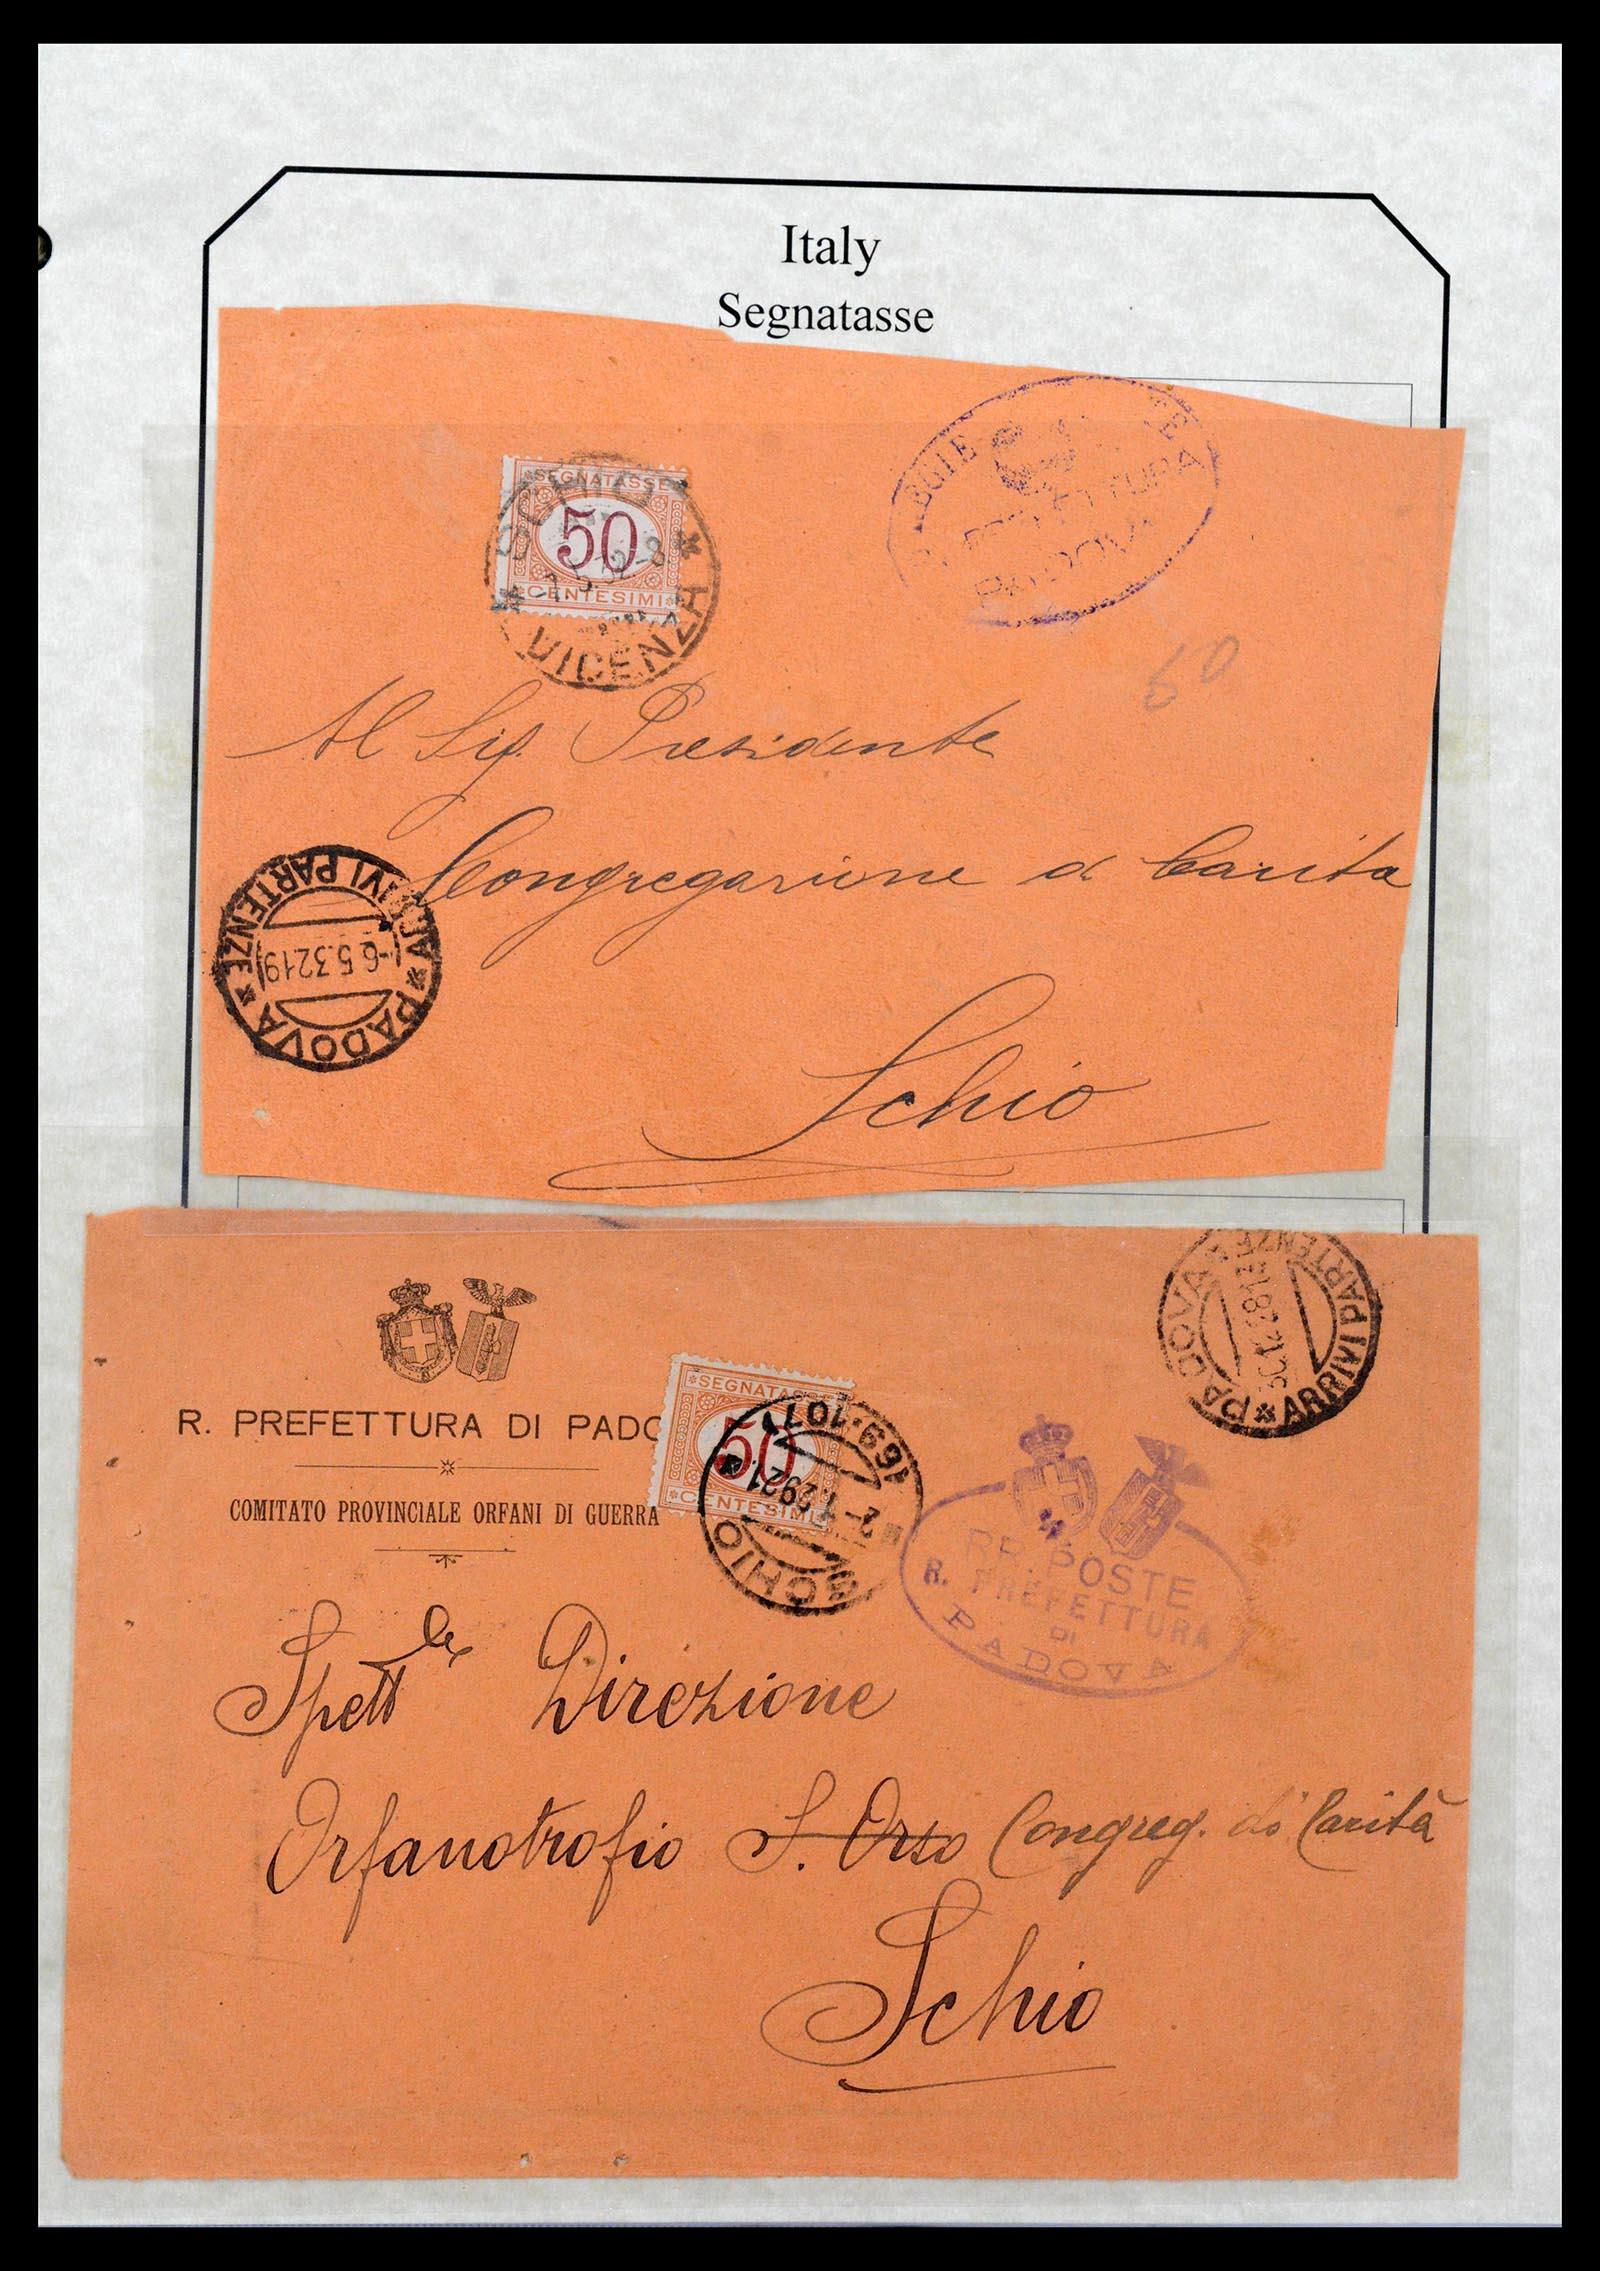 Italy
Segnatasse
SEGNATASSE
50
CENTESIMI
SCHIO
7.5.32-8
VICENZA
PREFETTURA
PADOVA
50
Al Sig. Presidente
Congregazione di Carità
Schio
PADOVA
ARRIVI PARTENZE
-6.5.32 19
PADOVA
ARRIVI PARTENZE
30.12.28 17
R. PREFETTURA DI PADO
COMITATO PROVINCIALE ORFANI DI GUERRA
SEGNATASSE
50
CENTESIMI
SCHIO
(69-107)
RR. POSTE
R. PREFETTURA
DI
PADOVA
Spett.le Direzione
Orfanotrofio S. Orso Congreg. di Carità
Schio